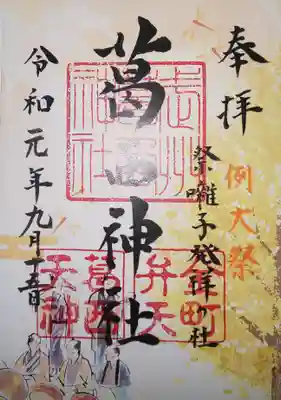 奉拝
例大祭
祭囃子発祥の社
葛西神社
令和元年九月十五日
武州
神社
金町
弁天
葛西
天神